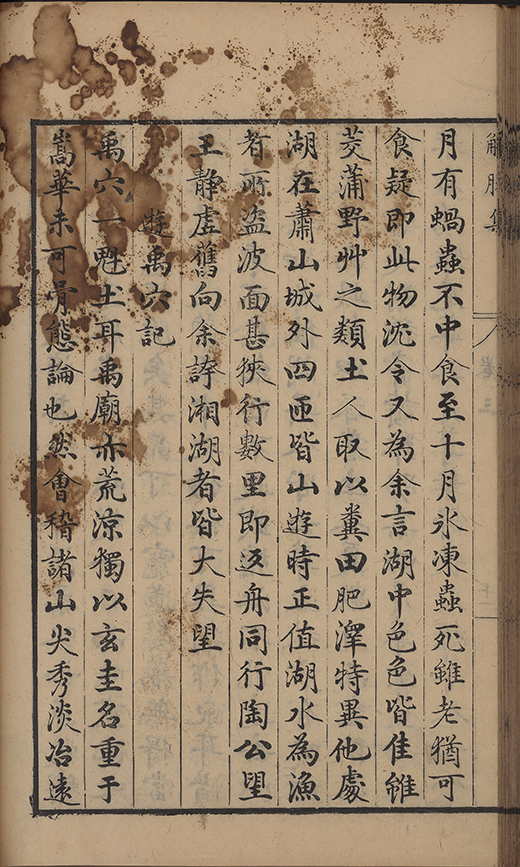 解脫集
卷三
十二
月有蝸蟲不中食至十月氷凍蟲死雖老猶可
食疑即此物沈令又為余言湖中色色皆佳雖
茭蒲野艸之類土人取以糞田肥澤特異他處
湖在蕭山城外四匝皆山遊時正值湖水為漁
者所盜波面甚狹行數里即返舟同行陶公望
王靜虛舊向余誇湘湖者皆大失望
遊禹穴記
禹穴一魁土耳禹廟亦荒涼獨以玄圭名重于
嵩華未可骨態論也然會稽諸山尖秀淡冶遠